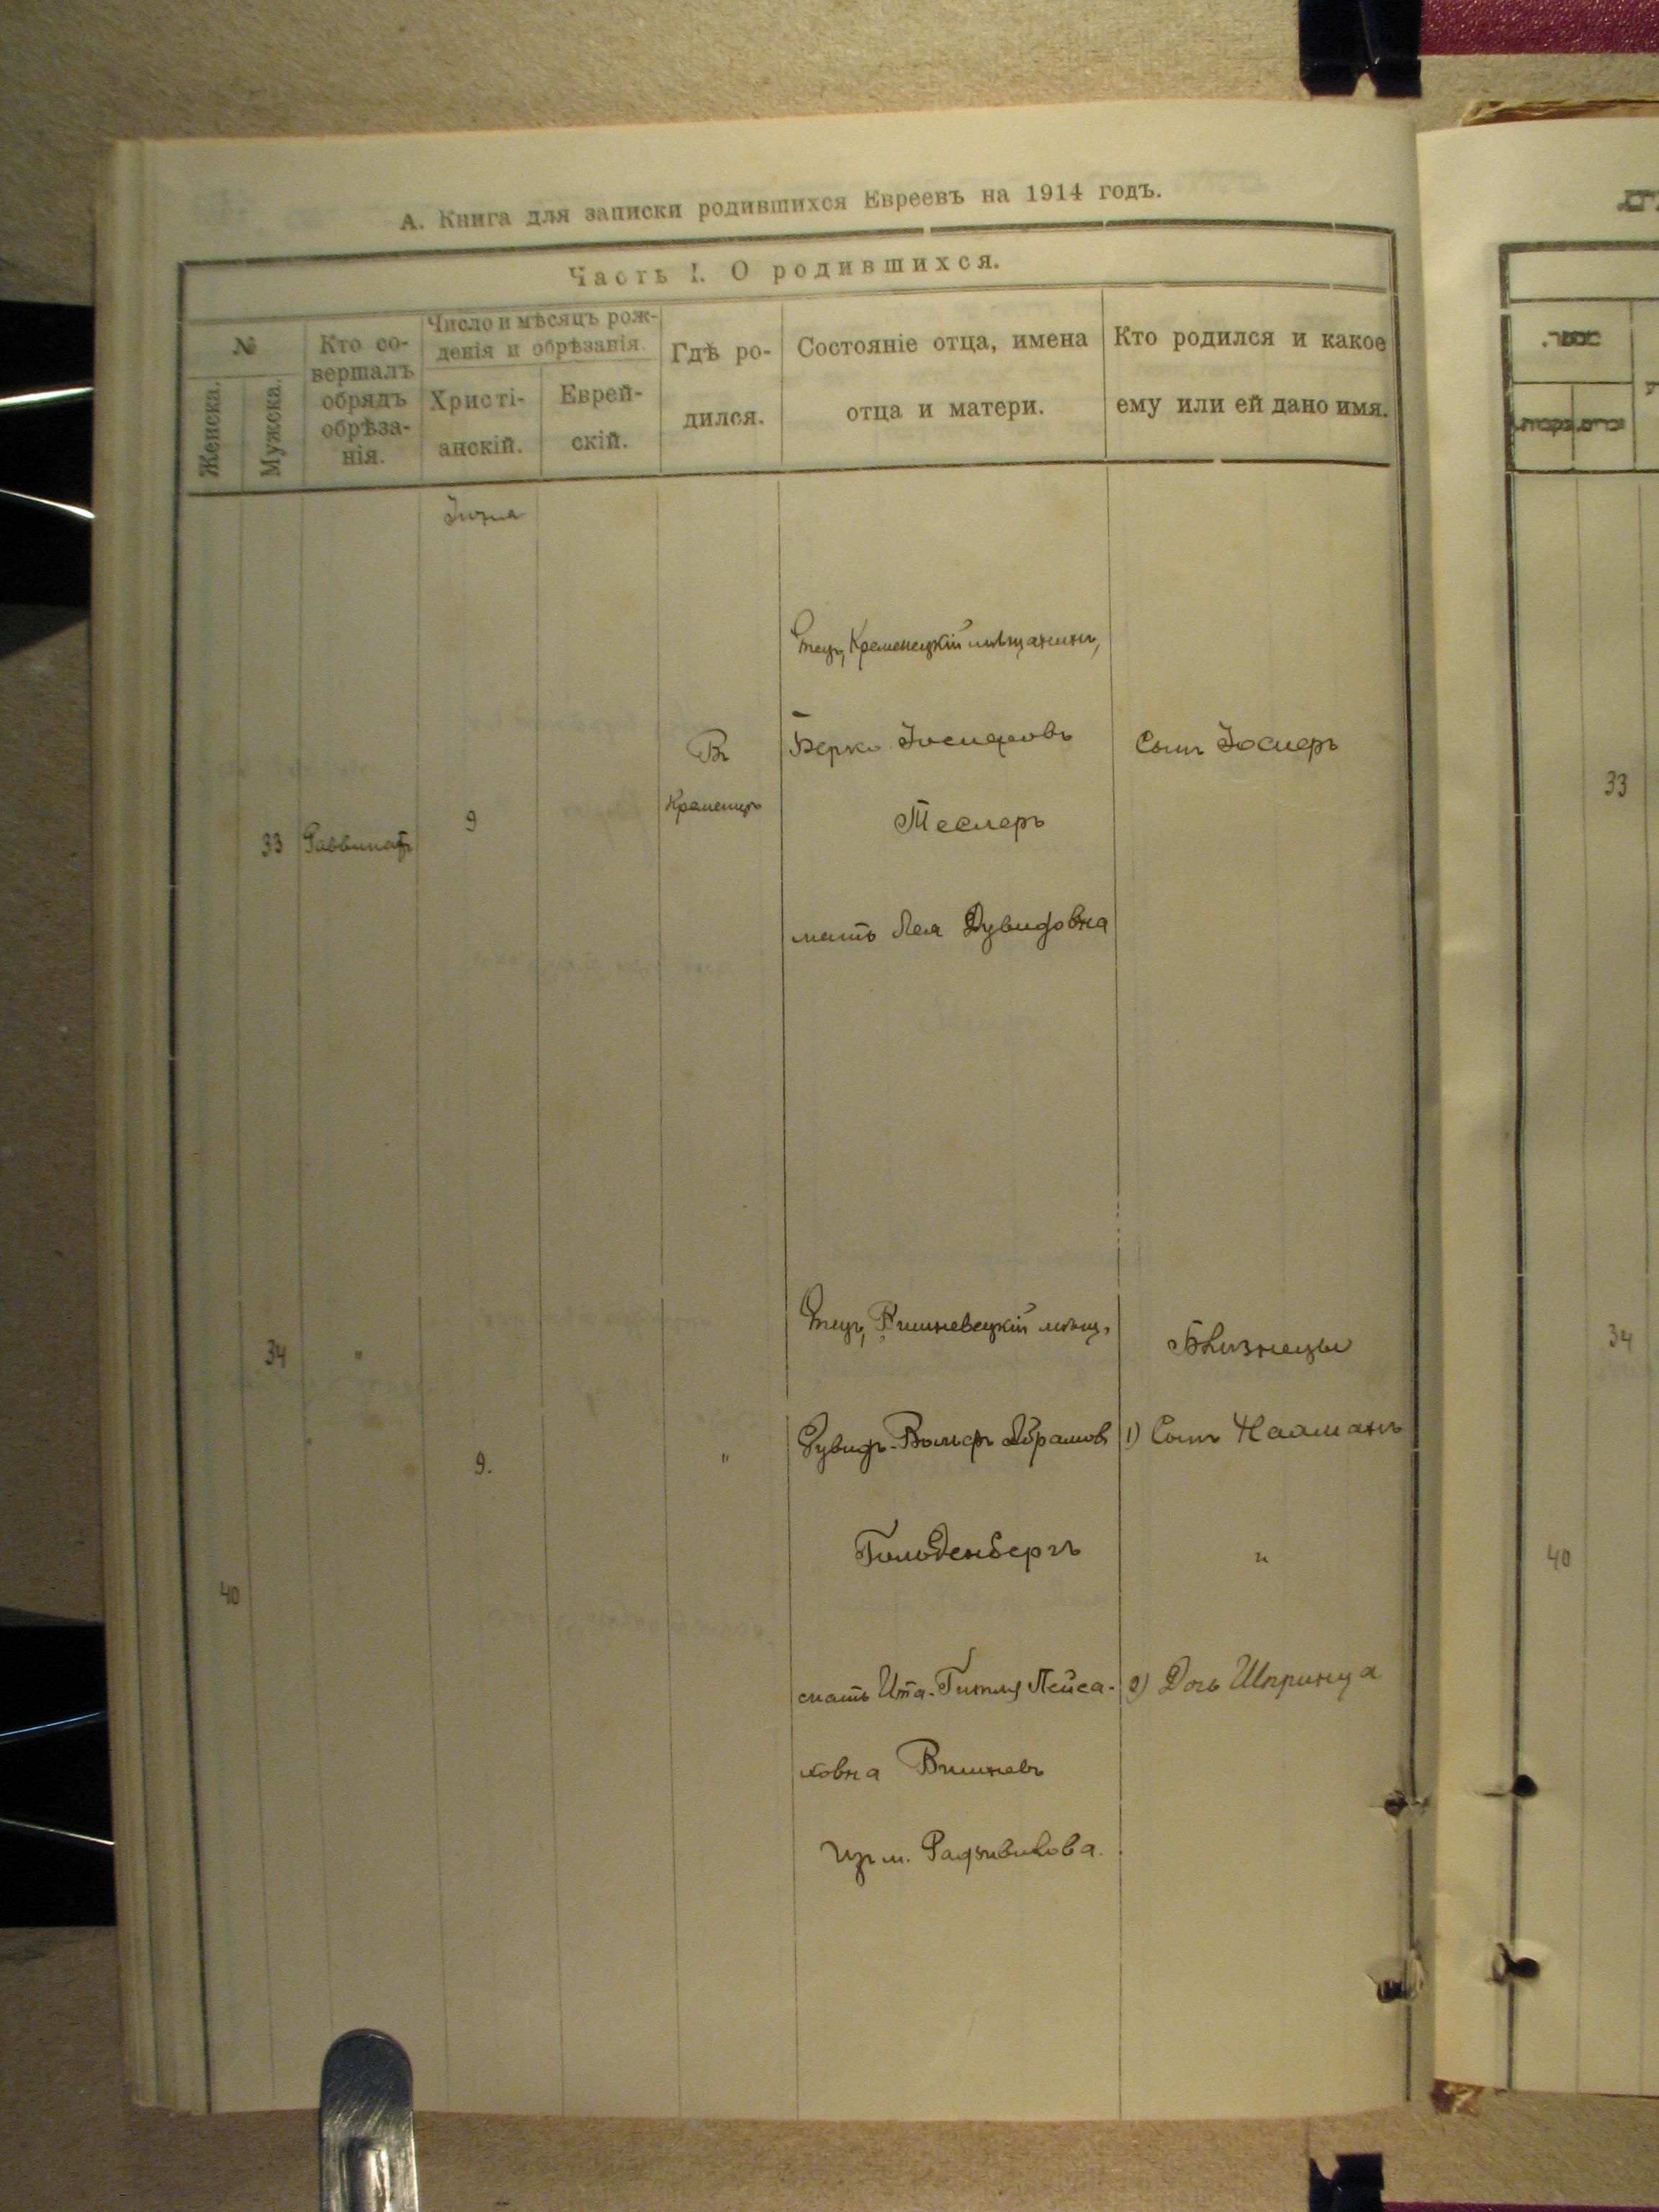 А. Книга для записки родившихся Евреевъ на 1914 годъ.
Часть I. О родившихся.
№
Женска.
Мужска.
Кто со-
вершалъ
обрядъ
обрѣза-
нія.
Число и мѣсяцъ рож-
денія и обрѣзанія.
Христі-
анскій.
Еврей-
скій.
Гдѣ ро-
дился.
Состояніе отца, имена
отца и матери.
Кто родился и какое
ему или ей дано имя.
33
Раввинатъ
9
Въ
Кременцѣ
Отецъ, Кременецкій мѣщанинъ,
Берко Іосифовъ
Теслеръ
мать Лея Дувидовна
Сынъ
34
"
40
9.
"
Отецъ, Вишневецкій мѣщ.
Дувидъ-Вольфъ Абрамов
Гольденбергъ
мать Ита-Гитля Пейса-
ховна Вишневъ
изъ м. Радзивилова.
Близнецы
1) Сынъ Нааманъ
"
2) Дочь Шпринца
33
34
40